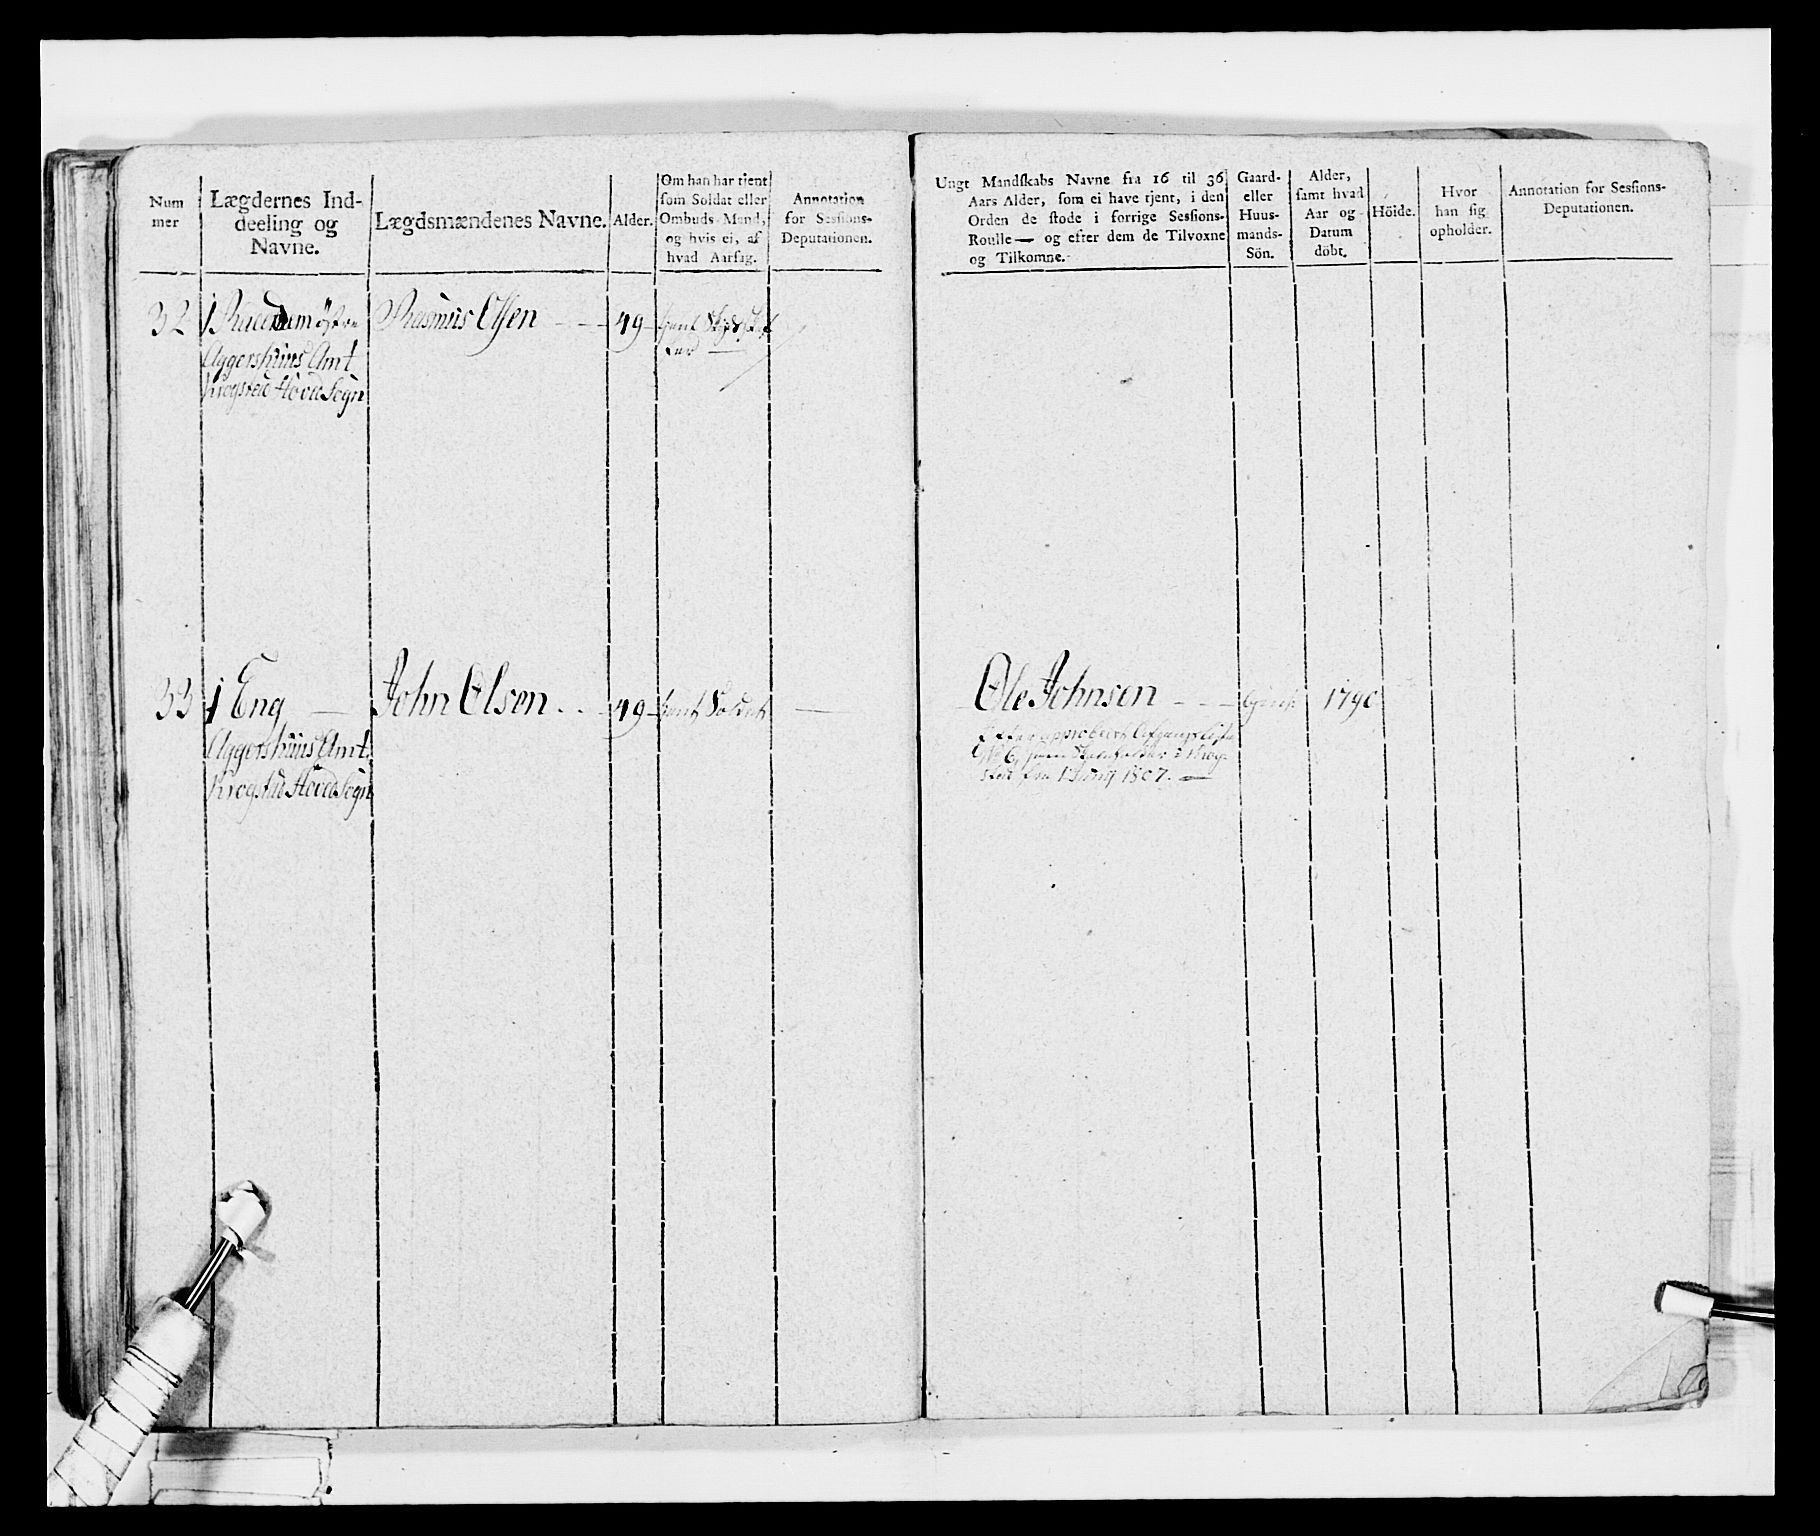 Num
mer
Lægdernes Ind-
deeling og
Navne.
Lægdsmændenes Navne.
Alder.
Om han har tjent
som Soldat eller
Ombuds Mand,
og hvis ei, af
hvad Aarsag.
Annotation
for Sessions-
Deputationen.
32
1
östre
Aggershuus Amt
Krogsted Hoved Sogn
Rasmus Olsen
49
tient
33
1 Eng
Aggershuus Amt
Krogsted Hoved Sogn
John Olsen
49
tient Soldat
Ungt Mandskabs Navne fra 16 til 36
Aars Alder, som ei have tjent, i den
Orden de stode i forrige Sessions-
Roulle— og efter dem de Tilvoxne
og Tilkomne.
Gaard-
eller
Huus-
mands-
Sön.
Alder,
samt hvad
Aar og
Datum
döbt.
Höide.
Hvor
han sig
opholder.
Annotation for Sessions-
Deputationen.
Ole Johnsen
1790
Efter approberet Afgangsliste
sted fra 1807.